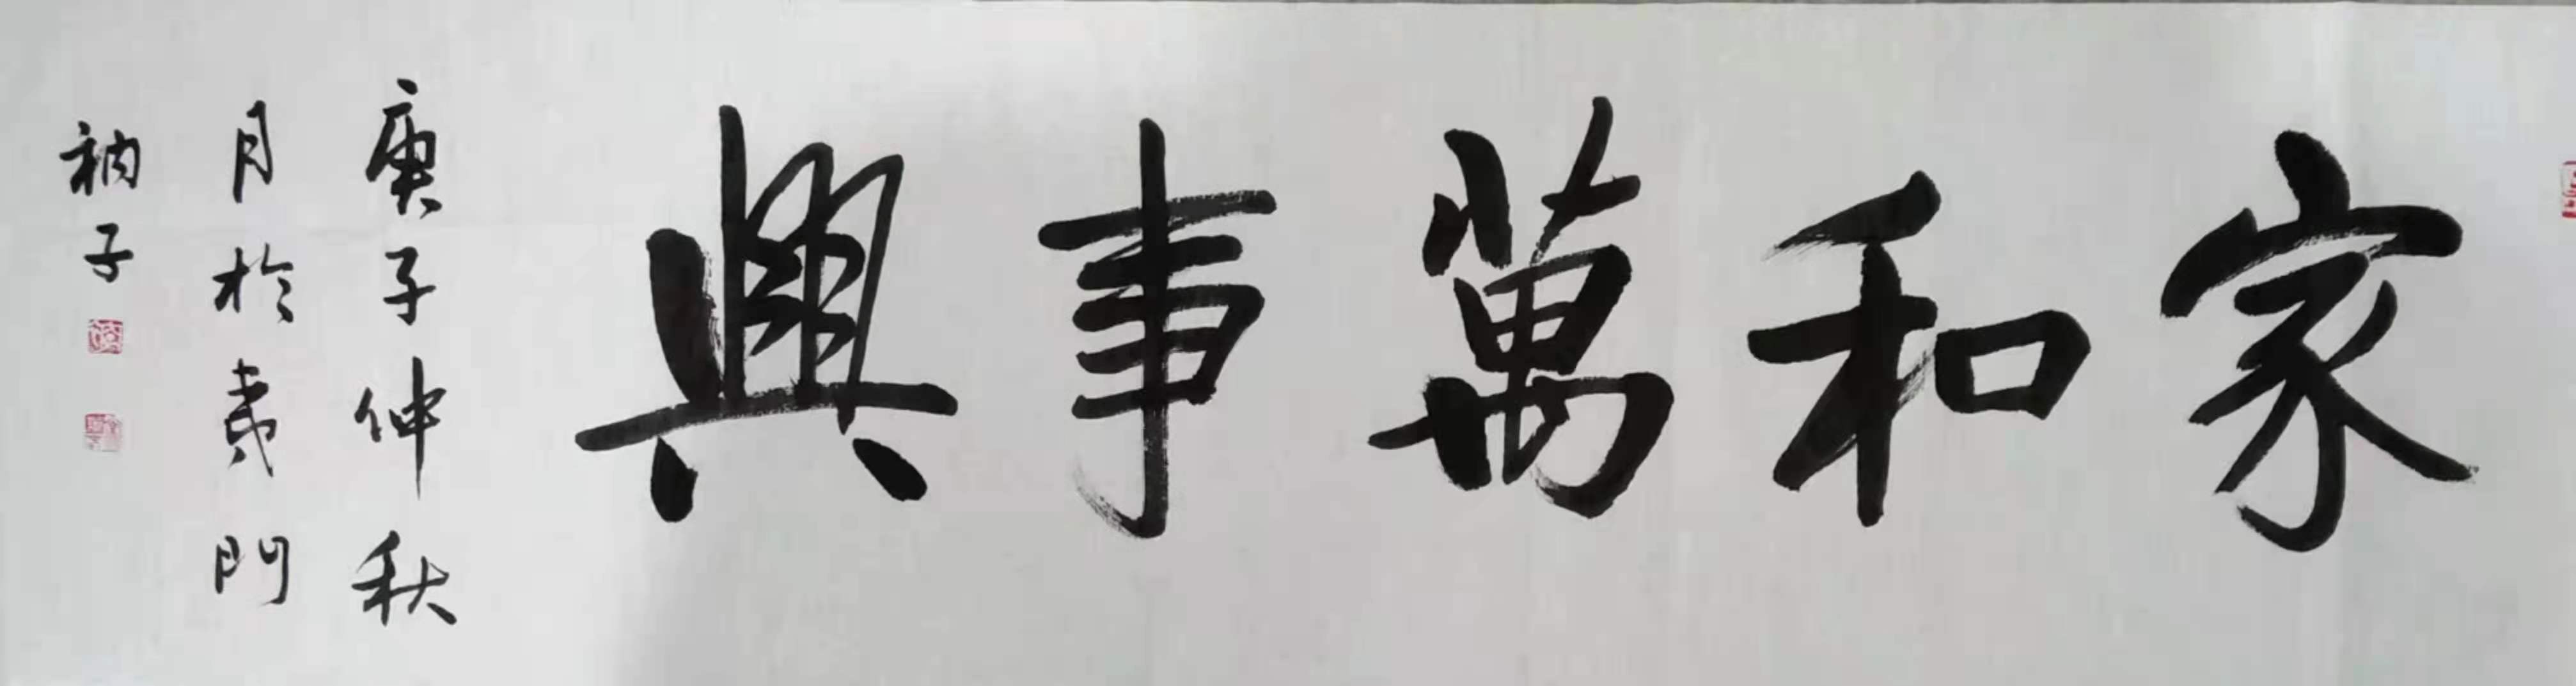 家和萬事興
庚子仲秋
月於夷門
衲子